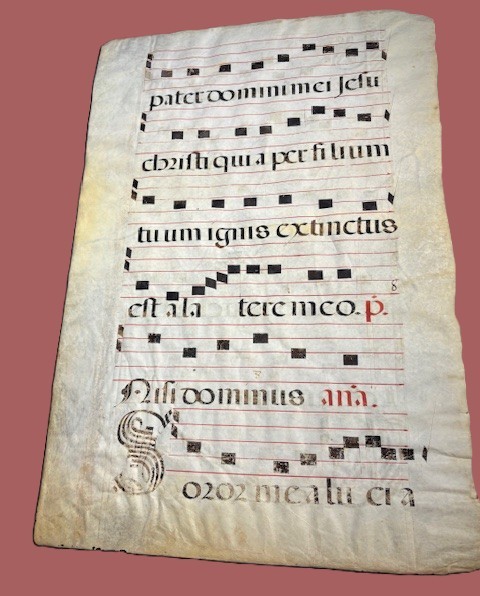 pater domini mei Jesu
christi qui a per filium
tuum ignis extinctus
est a la tere meo. p̄.
Nisi dominus ana.
Soror mea lu ci a